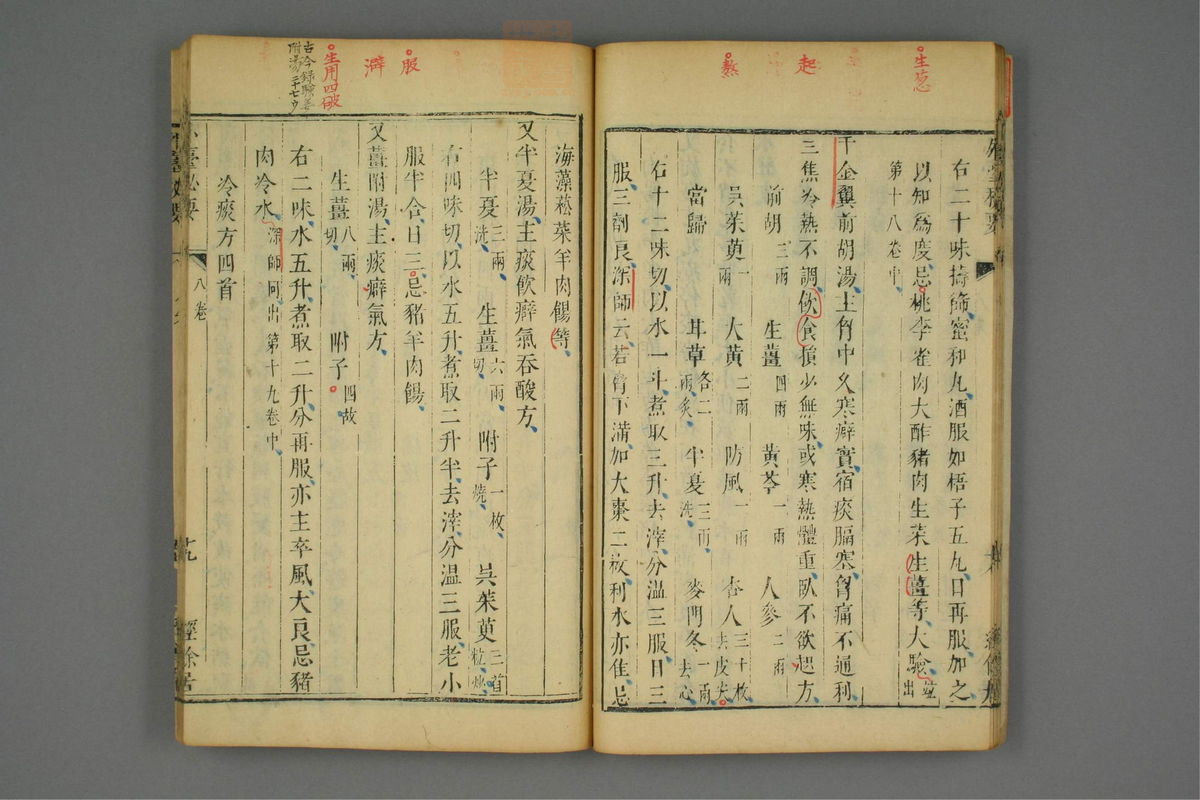 生葱
起
熬
右二十味擣篩蜜和丸酒服如梧子五丸日再服加之
以知爲度忌桃李雀肉大酢豬肉生菜生薑等大驗並出
第十八卷中
千金翼前胡湯主胷中久寒癖實宿痰膈塞胷痛不通利
三焦冷熱不調飲食損少無味或寒熱體重臥不欲起方
前胡三兩 生薑四兩 黃芩一兩 人參二兩
吳茱萸一兩 大黃二兩 防風一兩 杏人三十枚去皮尖
當歸 甘草各二兩炙 半夏三兩洗 麥門冬一兩去心
右十二味切以水一斗煮取三升去滓分温三服日三
服三劑良深師云若胷下滿加大棗二枚利水亦佳忌
服
澼
生用四破
古今錄驗姜附湯三十七ウ
海藻菘菜羊肉餳等
又半夏湯主痰飲癖氣吞酸方
半夏三兩洗 生薑六兩切 附子一枚燒 吳茱萸三百粒炒
右四味切以水五升煮取二升半去滓分温三服老小
服半合日三忌豬羊肉餳
又薑附湯主痰癖氣方
生薑八兩切 附子四枚
右二味水五升煮取二升分再服亦主卒風大良忌豬
肉冷水深師同出第十九卷中
冷痰方四首
臺秘要
八卷
經餘居